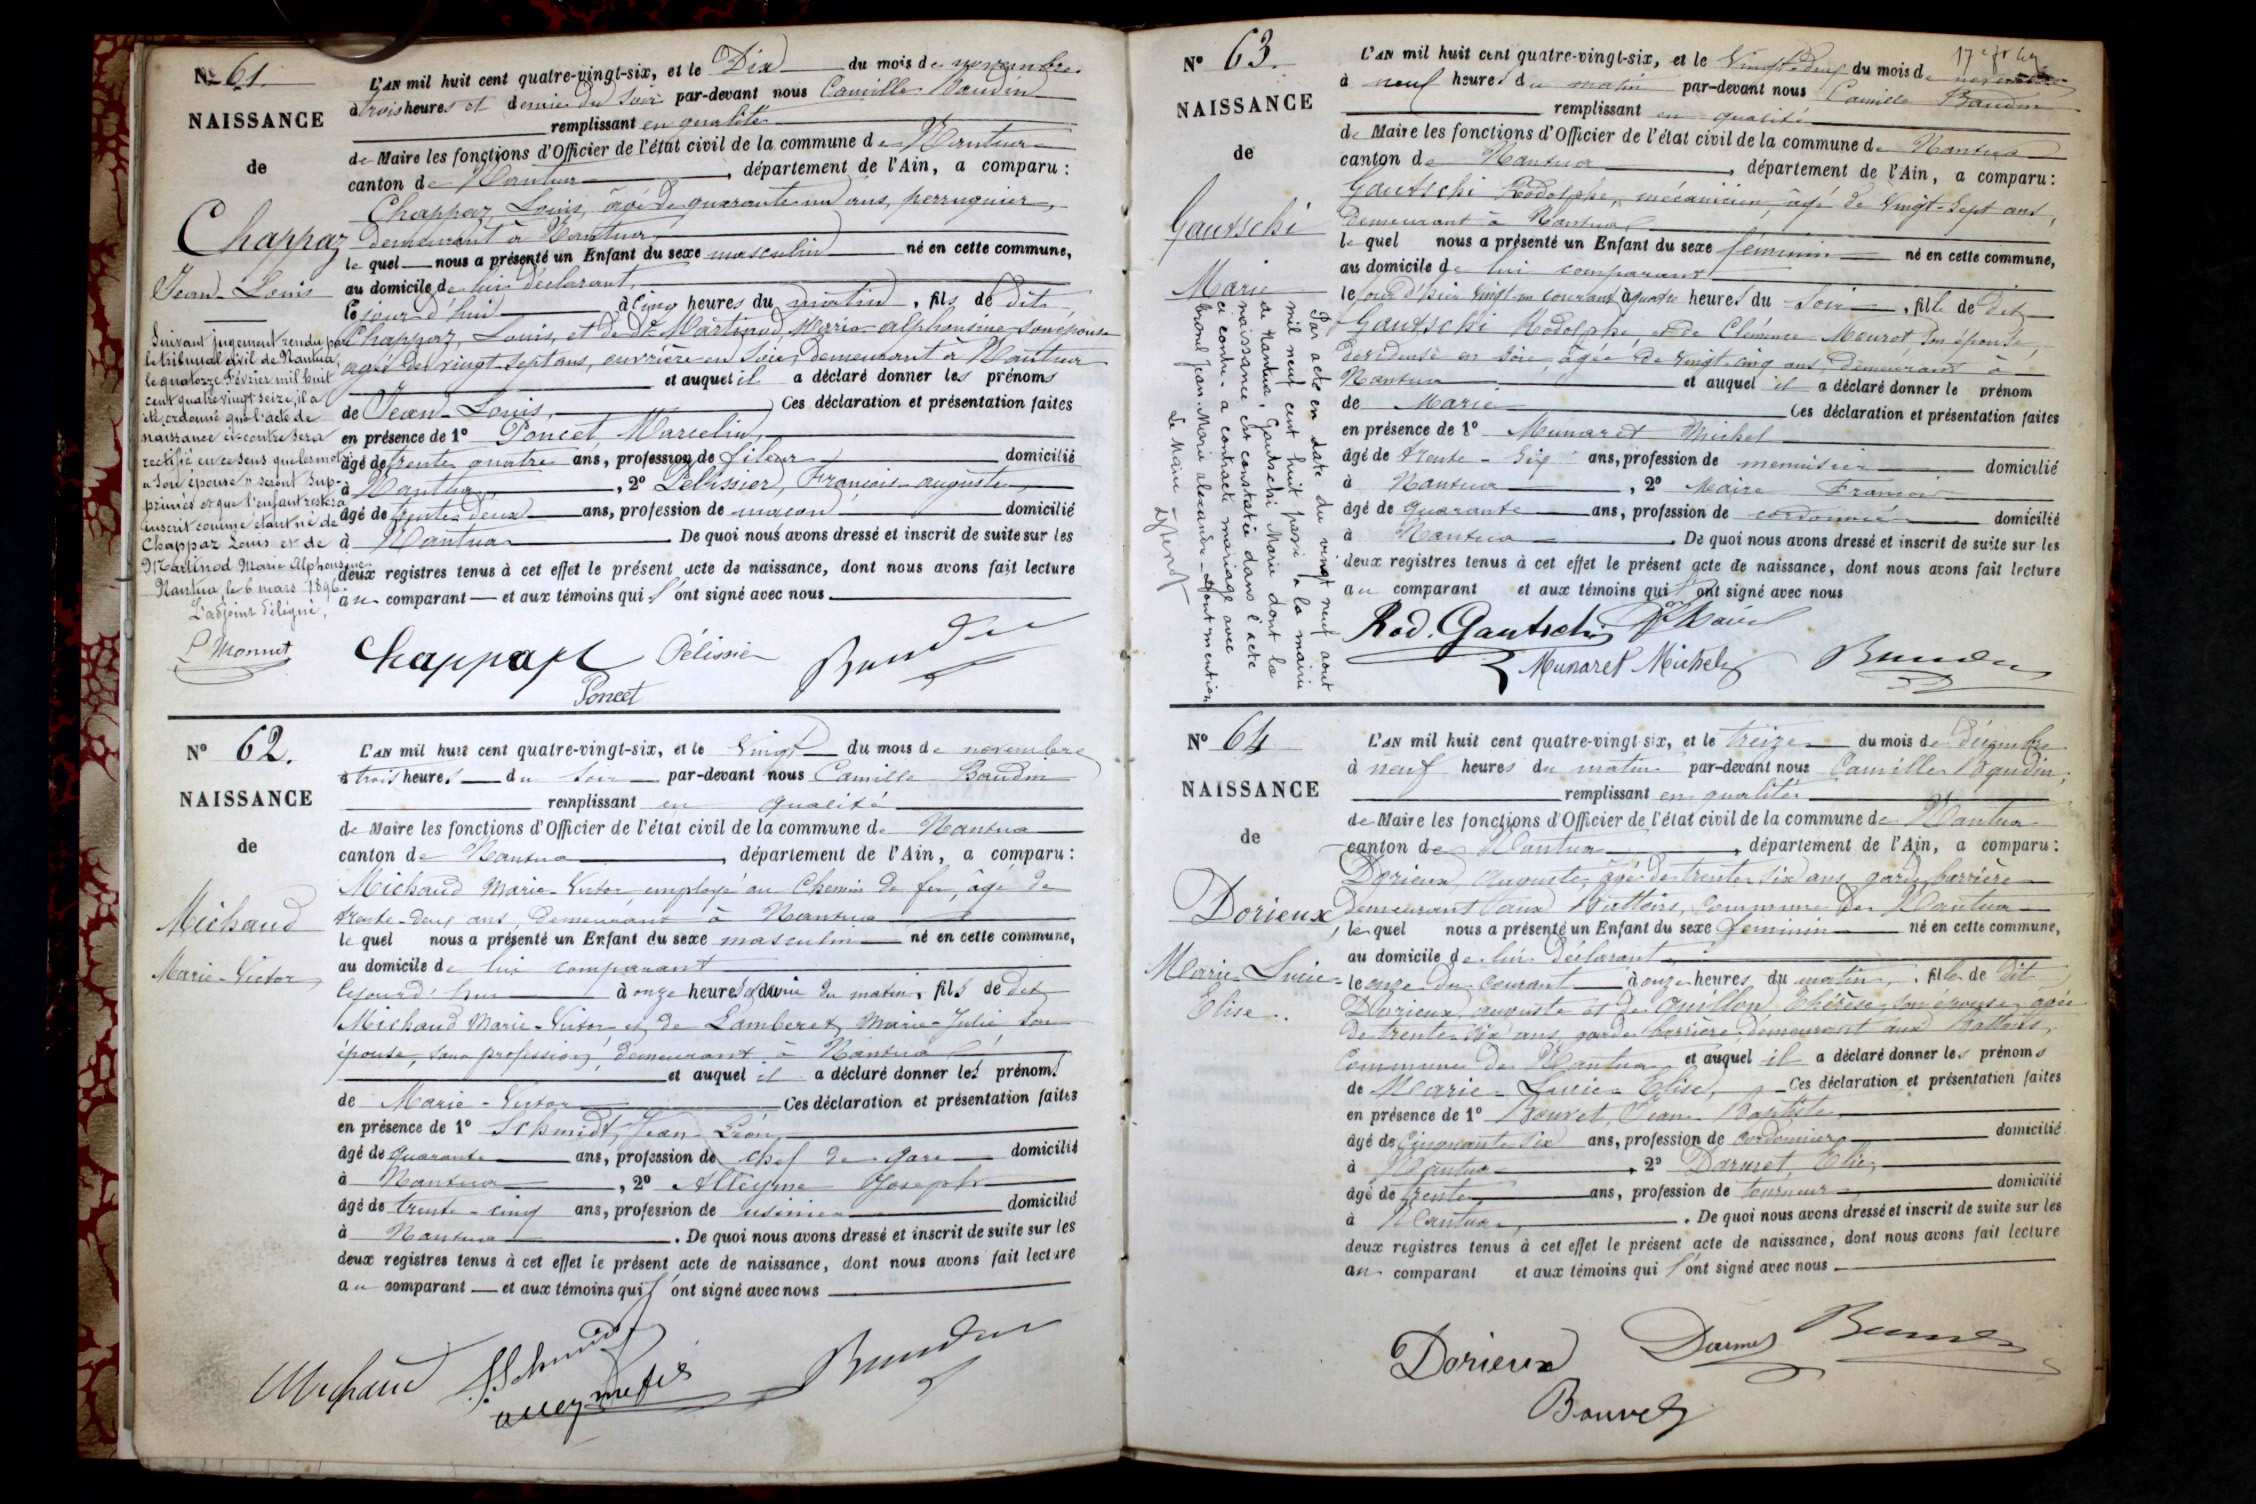 N° 61.
NAISSANCE
de
Chappaz
Jean-Louis
Suivant jugement rendu par
le tribunal civil de Nantua,
le quatorze Février mil huit
cent quatre vingt seize, il a
été ordonné que l'acte de
naissance ci-contre sera
rectifié en ce sens que les mots
"son épouse" seront sup-
primés et que l'enfant restera
inscrit comme étant né de
Chappaz Louis et de
Martinod Marie Alphonsine.
Nantua, le 6 mars 1896.
L'adjoint délégué,
L Monnet
L'AN mil huit cent quatre-vingt-six, et le Dix du mois de novembre
à trois heures et demie du soir par-devant nous Camille Baudin
remplissant en qualité
de Maire les fonctions d'Officier de l'état civil de la commune de Nantua
canton de Nantua, département de l'Ain, a comparu :
Chappaz, Louis, âgé de quarante un ans, perruquier,
demeurant à Nantua,
le quel nous a présenté un Enfant du sexe masculin né en cette commune,
au domicile de lui déclarant,
le jour d'hui à cinq heures du matin, fils de dit
Chappaz, Louis, et de De Martinod Marie-alphonsine, son épouse
agée de vingt-sept ans, ouvrière en soie, demeurant à Nantua
et auquel il a déclaré donner les prénoms
de Jean-Louis, Ces déclaration et présentation faites
en présence de 1° Poncet, Marcelin,
âgé de trente quatre ans, profession de fileur domicilié
à Nantua, 2° Pelissier, François-auguste,
âgé de trente deux ans, profession de maçon domicilié
à Nantua De quoi nous avons dressé et inscrit de suite sur les
deux registres tenus à cet effet le présent acte de naissance, dont nous avons fait lecture
au comparant et aux témoins qui l'ont signé avec nous
Chappaz Pélissier Baudin
Poncet
N° 62.
NAISSANCE
de
Michaud
Marie-Victor
L'AN mil huit cent quatre-vingt-six, et le Vingt du mois de novembre
à trois heures du soir par-devant nous Camille Baudin
remplissant en qualité
de Maire les fonctions d'Officier de l'état civil de la commune de Nantua
canton de Nantua, département de l'Ain, a comparu :
Michaud Marie-Victor, employé au Chemin de fer, âgé de
trente-deux ans, demeurant à Nantua
le quel nous a présenté un Enfant du sexe masculin né en cette commune,
au domicile de lui comparant
le jourd'hui à onze heures et demie du matin, fils de dit
Michaud Marie-Victor et de Lamberet Marie-Julie son
épouse, sans profession, demeurant à Nantua
et auquel il a déclaré donner les prénoms
de Marie-Victor Ces déclaration et présentation faites
en présence de 1° Schmidt, Jean Léon,
âgé de quarante ans, profession de chef de gare domicilié
à Nantua, 2° Alleyme Joseph
âgé de trente-cinq ans, profession de usinier domicilié
à Nantua. De quoi nous avons dressé et inscrit de suite sur les
deux registres tenus à cet effet le présent acte de naissance, dont nous avons fait lecture
au comparant et aux témoins qui l'ont signé avec nous
Michaud Schmidt Baudin
N° 63.
NAISSANCE
de
Gautschi
Marie
Par acte en date du vingt neuf août
mil neuf cent huit passé à la mairie
de Nantua, Gautschi Marie dont la
naissance est constatée dans l'acte
ci contre a contracté mariage avec
Jean-Marie alexandre - dont mention
Le Maire
L'AN mil huit cent quatre-vingt-six, et le Vingt-deux du mois de novembre
à neuf heures du matin par-devant nous Camille Baudin
remplissant en qualité
de Maire les fonctions d'Officier de l'état civil de la commune de Nantua
canton de Nantua, département de l'Ain, a comparu :
Gautschi Rodolphe, mécanicien, âgé de Vingt-sept ans,
demeurant à Nantua,
le quel nous a présenté un Enfant du sexe féminin né en cette commune,
au domicile de lui comparant
le jour d'hier vingt-un courant à quatre heures du soir, fille de dit
Gautschi Rodolphe, et de Clémence Mourot son épouse,
dévideuse en soie, âgée de vingt-cinq ans, demeurant à
Nantua et auquel il a déclaré donner le prénom
de Marie Ces déclaration et présentation faites
en présence de 1° Munaret Michel
âgé de trente-six ans, profession de menuisier domicilié
à Nantua, 2° Maire François
âgé de quarante ans, profession de cordonnier domicilié
à Nantua. De quoi nous avons dressé et inscrit de suite sur les
deux registres tenus à cet effet le présent acte de naissance, dont nous avons fait lecture
au comparant et aux témoins qui l'ont signé avec nous
Rod. Gautschi Maire
Munaret Michel Baudin
N° 64
NAISSANCE
de
Dorieux,
Marie-Lucie-
Elise.
L'AN mil huit cent quatre-vingt-six, et le treize du mois de décembre
à neuf heures du matin par-devant nous Camille Baudin,
remplissant en qualité
de Maire les fonctions d'Officier de l'état civil de la commune de Nantua
canton de Nantua, département de l'Ain, a comparu :
Dorieux, Auguste, âgé de trente six ans, garde barrière
demeurant aux Battoirs, Commune de Nantua
le quel nous a présenté un Enfant du sexe féminin né en cette commune,
au domicile de lui déclarant
le onze du courant à onze heures du matin, fille de dit
Dorieux, auguste et de Guillon, Thérèse, son épouse, agée
de trente-six ans, garde barrière, demeurant aux Battoirs,
Commune de Nantua et auquel il a déclaré donner les prénoms
de Marie-Lucie-Elise, Ces déclaration et présentation faites
en présence de 1° Bouvet, Jean-Baptiste
âgé de cinquante six ans, profession de cordonnier domicilié
à Nantua, 2° Darmet, Elie,
âgé de trente ans, profession de tourneur domicilié
à Nantua,. De quoi nous avons dressé et inscrit de suite sur les
deux registres tenus à cet effet le présent acte de naissance, dont nous avons fait lecture
au comparant et aux témoins qui l'ont signé avec nous
Dorieux Darmet Baudin
Bouvet